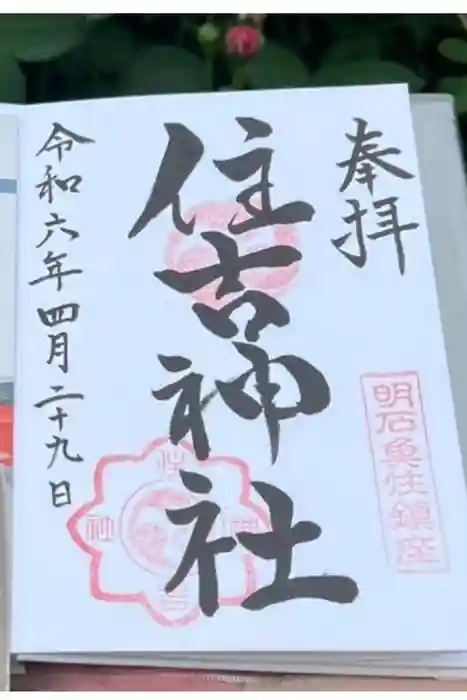 奉拝
明石魚住鎮座
住吉神社
令和六年四月二十九日